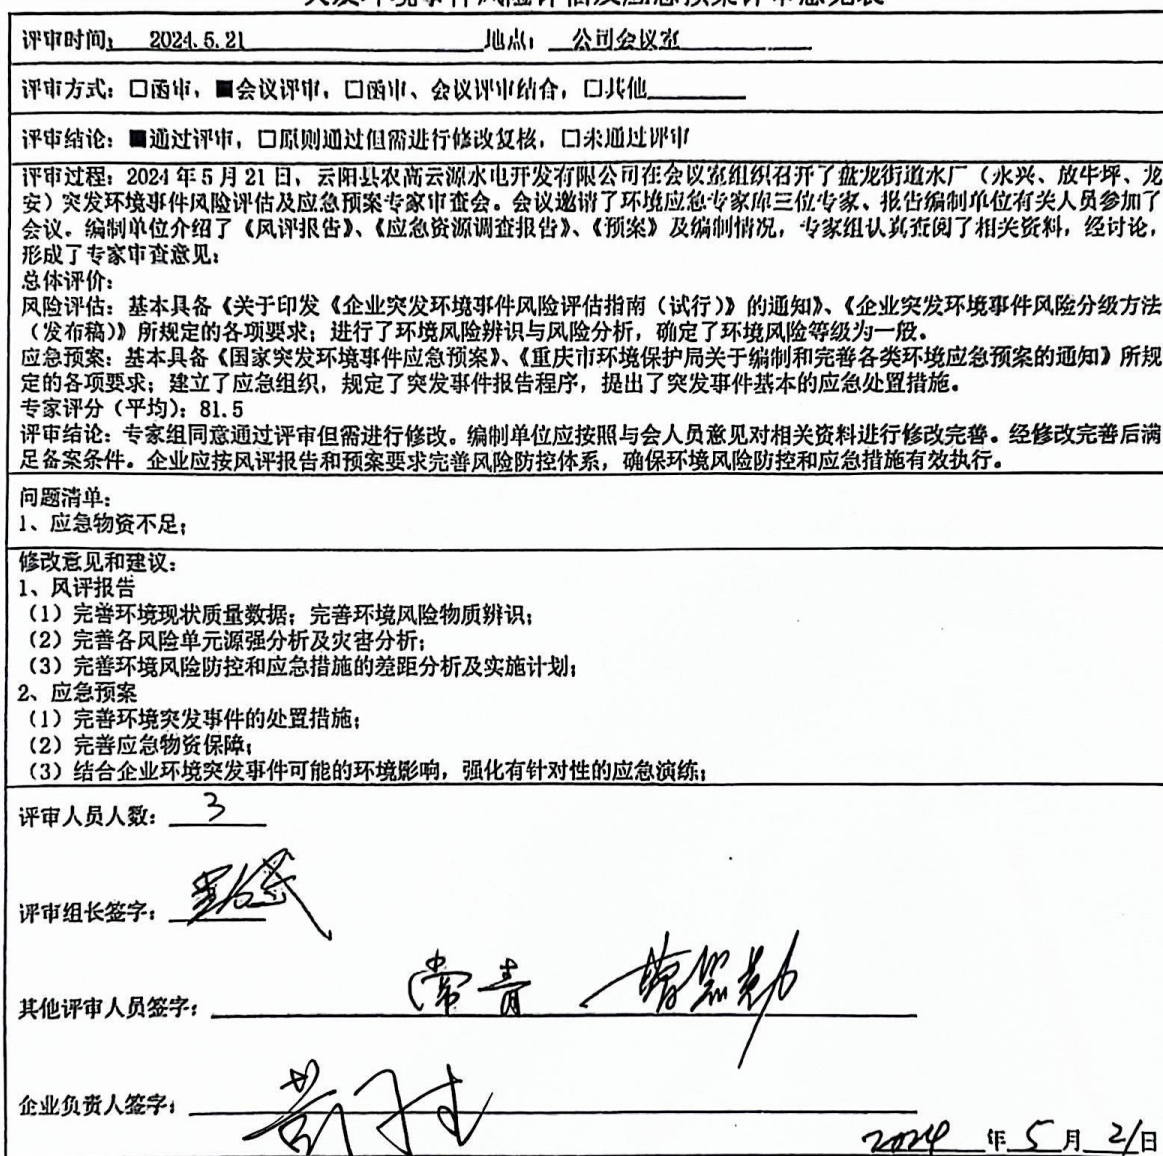 突发环境事件风险评估及应急预案评审意见表
评审时间： 2024.5.21 地点： 公司会议室
评审方式：□函审，■会议评审，□函审、会议评审结合，□其他
评审结论：■通过评审，□原则通过但需进行修改复核，□未通过评审
评审过程：2024 年 5 月 21 日，云阳县农高云源水电开发有限公司在会议室组织召开了盘龙街道水厂（永兴、放牛坪、龙
安）突发环境事件风险评估及应急预案专家审查会。会议邀请了环境应急专家库三位专家、报告编制单位有关人员参加了
会议。编制单位介绍了《风评报告》、《应急资源调查报告》、《预案》及编制情况，专家组认真查阅了相关资料，经讨论，
形成了专家审查意见：
总体评价：
风险评估：基本具备《关于印发《企业突发环境事件风险评估指南（试行）》的通知》、《企业突发环境事件风险分级方法
（发布稿）》所规定的各项要求；进行了环境风险辨识与风险分析，确定了环境风险等级为一般。
应急预案：基本具备《国家突发环境事件应急预案》、《重庆市环境保护局关于编制和完善各类环境应急预案的通知》所规
定的各项要求；建立了应急组织，规定了突发事件报告程序，提出了突发事件基本的应急处置措施。
专家评分（平均）：81.5
评审结论：专家组同意通过评审但需进行修改。编制单位应按照与会人员意见对相关资料进行修改完善。经修改完善后满
足备案条件。企业应按风评报告和预案要求完善风险防控体系，确保环境风险防控和应急措施有效执行。
问题清单：
1、应急物资不足；
修改意见和建议：
1、风评报告
（1）完善环境现状质量数据；完善环境风险物质辨识；
（2）完善各风险单元源强分析及灾害分析；
（3）完善环境风险防控和应急措施的差距分析及实施计划；
2、应急预案
（1）完善环境突发事件的处置措施；
（2）完善应急物资保障；
（3）结合企业环境突发事件可能的环境影响，强化有针对性的应急演练；
评审人员人数： 3
评审组长签字：
其他评审人员签字： 常青
企业负责人签字：
2024 年 5 月 21 日